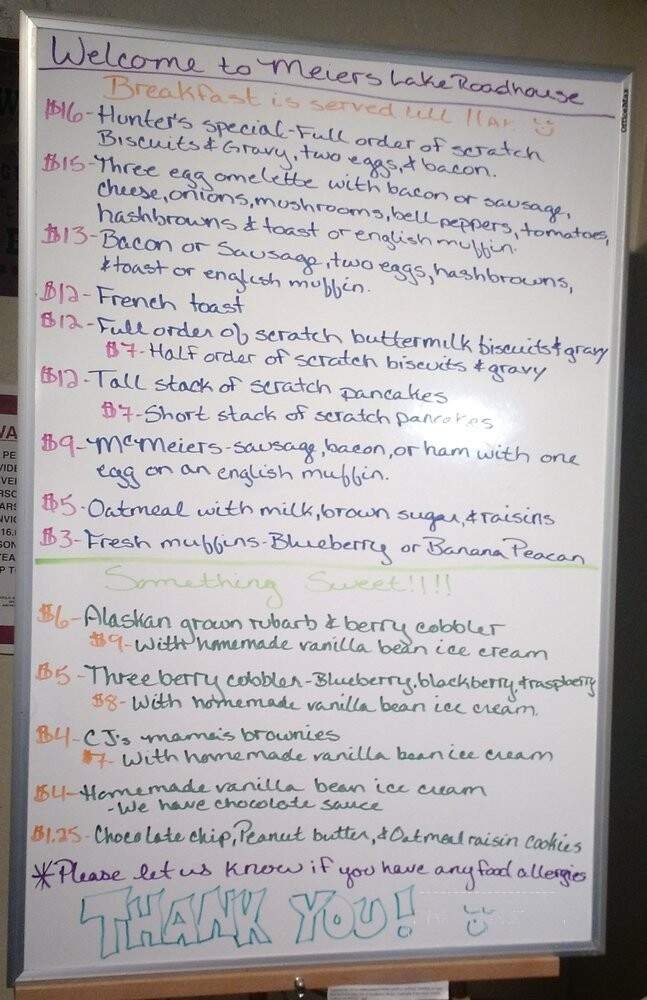 Welcome to Meiers Lake Roadhouse
Breakfast is served till 11am
OfficeMax
$16-Hunter's special-Full order of scratch
Biscuits & Gravy, two eggs, & bacon.
$15-Three egg omelette with bacon or sausage,
cheese, onions, mushrooms, bell peppers, tomatoes,
hashbrowns & toast or english muffin.
$13-Bacon or Sausage, two eggs, hashbrowns,
& toast or english muffin.
$12-French toast
$12-Full order of scratch buttermilk biscuits & gravy
$7-Half order of scratch biscuits & gravy
$12-Tall stack of scratch pancakes
$7-Short stack of scratch pancakes
$9-McMeiers-sausage, bacon, or ham with one
egg on an english muffin.
$5-Oatmeal with milk, brown sugar, & raisins
$3-Fresh muffins-Blueberry or Banana Peacan
Something Sweet!!!!
$6-Alaskan grown rubarb & berry cobbler
$9-With homemade vanilla bean ice cream
$5-Three berry cobbler-Blueberry, blackberry, & raspberry
$8-With homemade vanilla bean ice cream.
$4-CJ's mama's brownies
$7-With homemade vanilla bean ice cream
$4-Homemade vanilla bean ice cream
-We have chocolate sauce
$1.25-Chocolate chip, Peanut butter, & Oatmeal raisin cookies
*Please let us know if you have any food allergies
THANK YOU!